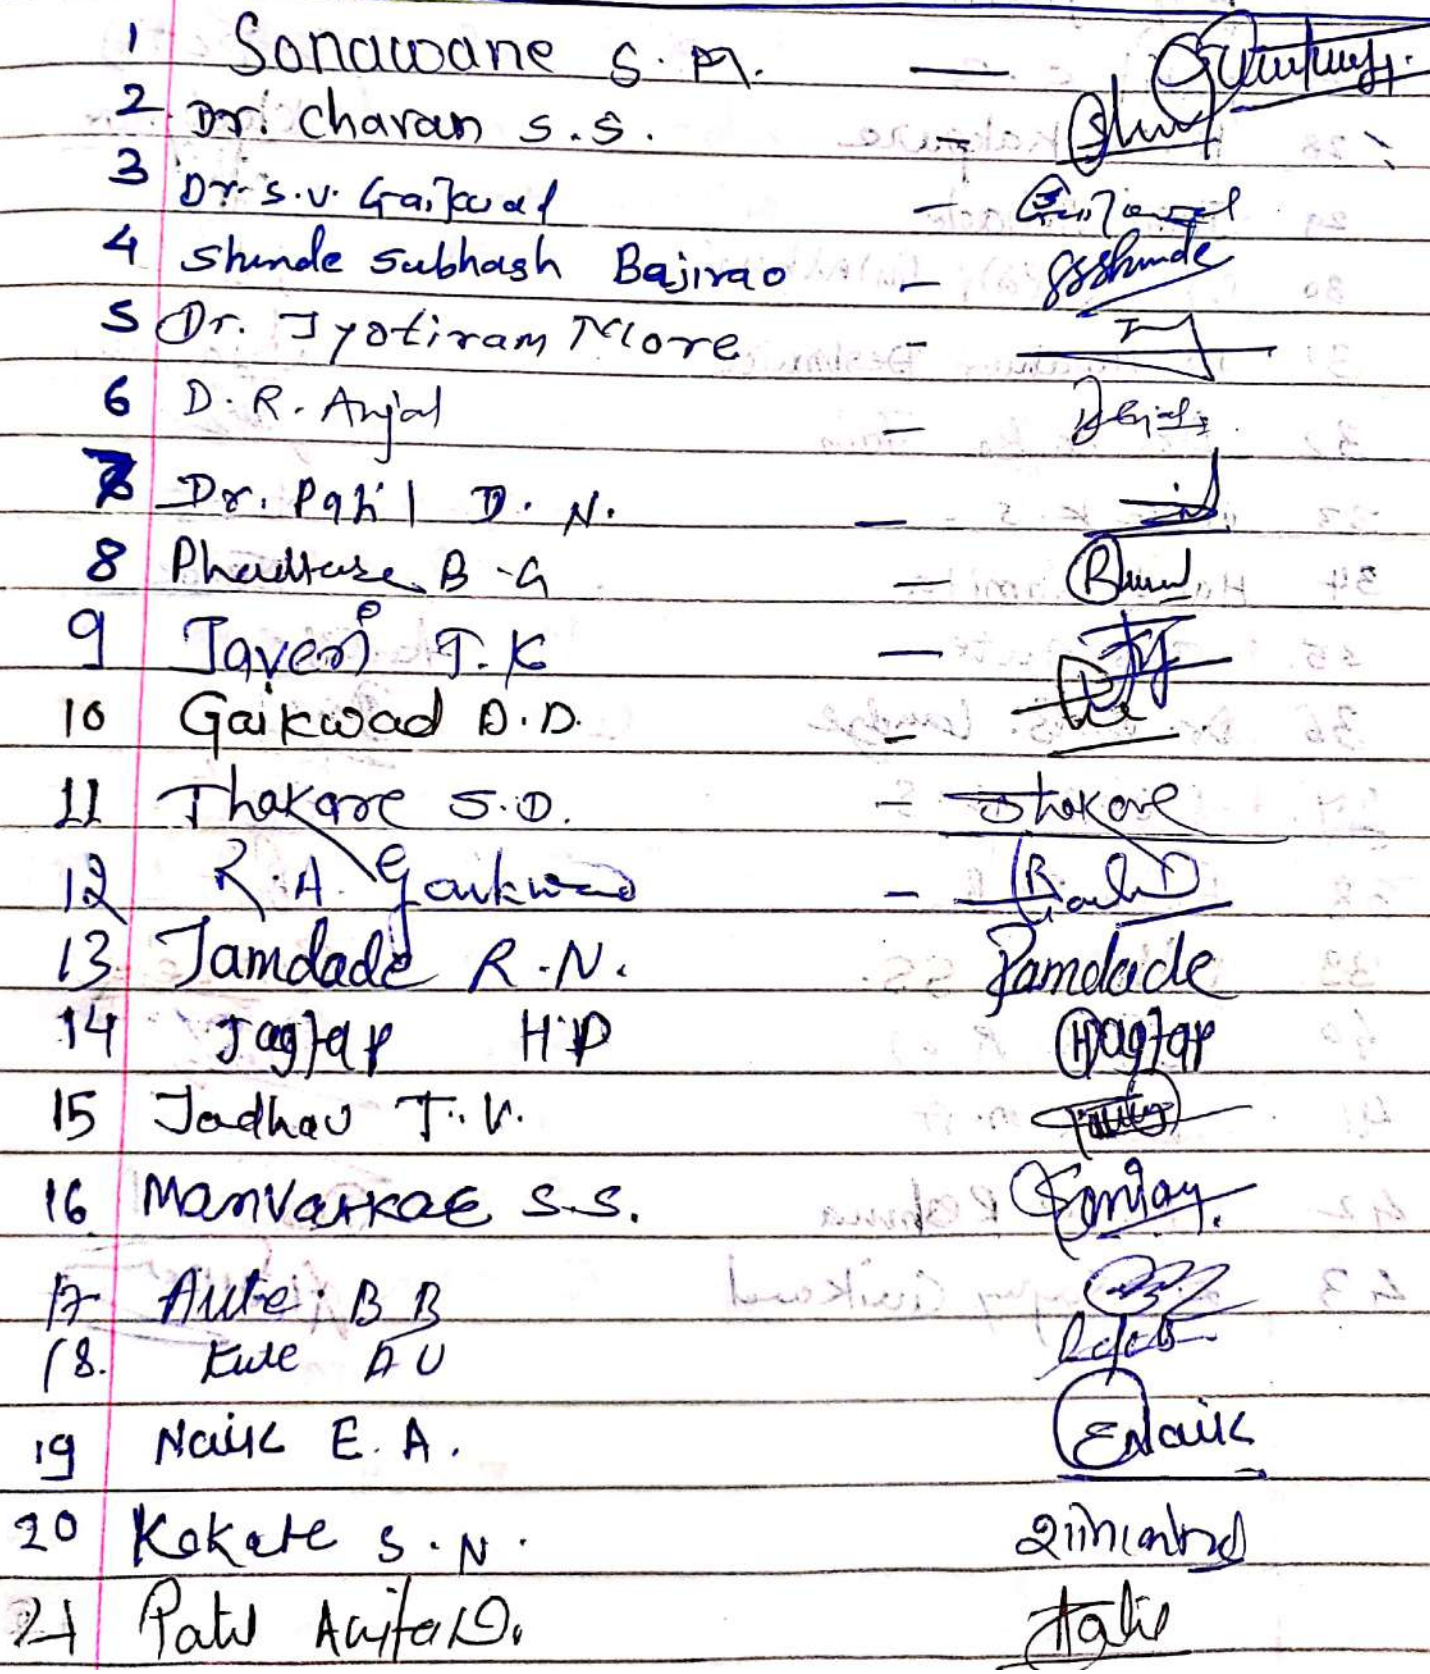 1 Sonawane S. M. —
2 Dr. Chavan S.S. —
3 Dr. S.V. Gaikwad —
4 Shinde Subhash Bajirao — SBShinde
5 Dr. Jyotiram More -
6 D. R. Anjal —
7 Dr. Patil D. N. —
8 Phadtare B.G —
9 Javeri J.K —
10 Gaikwad D.D. -
11 Thakare S.D. - Thakare
12 R.A. Gaikwad -
13 Jamdade R.N. Jamdade
14 Jagtap H.P HJagtap
15 Jadhav T.V.
16 Manvarkar S.S. Sanjay
17 Aute B B
18. Kute A U
19 Naik E. A. ENaik
20 Kokate S.N.
21 Patil Anita D. Patil